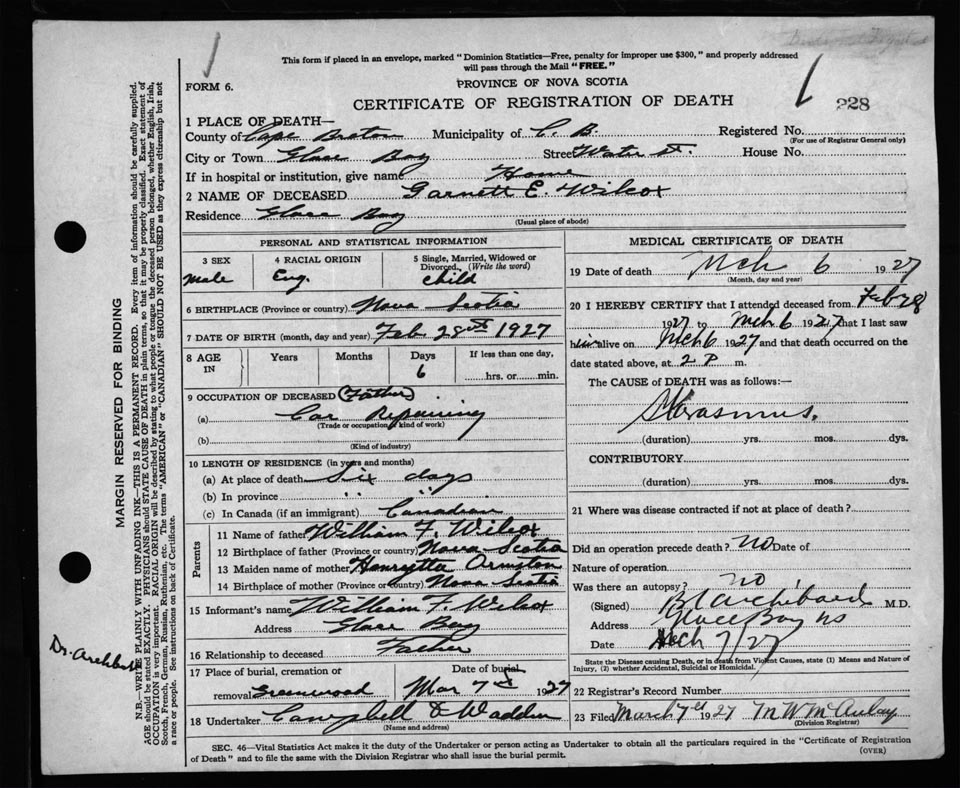 This form if placed in an envelope, marked "Dominion Statistics—Free, penalty for improper use $300," and properly addressed
will pass through the Mail "FREE."
FORM 6.
PROVINCE OF NOVA SCOTIA
CERTIFICATE OF REGISTRATION OF DEATH
228
1 PLACE OF DEATH—
County of Cape Breton Municipality of C. B. Registered No.
(For use of Registrar General only)
City or Town Glace Bay Street Water St. House No.
If in hospital or institution, give name Home
2 NAME OF DECEASED Garnett E. Wilcox
Residence Glace Bay
(Usual place of abode)
PERSONAL AND STATISTICAL INFORMATION
3 SEX
male
4 RACIAL ORIGIN
Eng.
5 Single, Married, Widowed or
Divorced, (Write the word)
child
6 BIRTHPLACE (Province or country) Nova Scotia
7 DATE OF BIRTH (month, day and year) Feb. 28th 1927
8 AGE
IN
Years
Months
Days
6
If less than one day,
hrs. or min.
9 OCCUPATION OF DECEASED (Father)
(a) Car Repairing
(Trade or occupation, kind of work)
(b)
(Kind of industry)
10 LENGTH OF RESIDENCE (in years and months)
(a) At place of death Six days
(b) In province " "
(c) In Canada (if an immigrant) Canadian
Parents
11 Name of father William F. Wilcox
12 Birthplace of father (Province or country) Nova Scotia
13 Maiden name of mother Henrytta Ormston
14 Birthplace of mother (Province or country) Nova Scotia
15 Informant's name William F. Wilcox
Address Glace Bay
16 Relationship to deceased Father
17 Place of burial, cremation or
removal Greenwood
Date of burial
Mar 7th 1927
18 Undertaker Campbell & Wadden
(Name and address)
MEDICAL CERTIFICATE OF DEATH
19 Date of death Mch 6 1927
(Month, day and year)
20 I HEREBY CERTIFY that I attended deceased from Feb 28
1927 to Mch 6 1927 that I last saw
him alive on Mch 6 1927 and that death occurred on the
date stated above, at 2 P m.
The CAUSE of DEATH was as follows:—
(duration) yrs. mos. dys.
CONTRIBUTORY
(duration) yrs. mos. dys.
21 Where was disease contracted if not at place of death?
Did an operation precede death? no Date of
Nature of operation
Was there an autopsy? no
(Signed) Archibald M.D.
Address Glace Bay NS
Date Mch 7/27
State the Disease causing Death, or in death from Violent Causes, state (1) Means and Nature of
Injury, (2) whether Accidental, Suicidal or Homicidal.
22 Registrar's Record Number
23 Filed March 7th 1927 M W McAulay
(Division Registrar)
SEC. 46—Vital Statistics Act makes it the duty of the Undertaker or person acting as Undertaker to obtain all the particulars required in the "Certificate of Registration
of Death" and to file the same with the Division Registrar who shall issue the burial permit.
(OVER)
MARGIN RESERVED FOR BINDING
N.B.—WRITE PLAINLY WITH UNFADING INK—THIS IS A PERMANENT RECORD. Every item of information should be carefully supplied.
AGE should be stated EXACTLY. PHYSICIANS should STATE CAUSE OF DEATH in plain terms, so that it may be properly classified. Exact statement of
OCCUPATION is very important. RACIAL ORIGIN will be described by stating to what people or tongue the deceased person belonged, whether English, Irish,
Scotch, French, German, Russian, Ruthenian, etc. The terms "AMERICAN" or "CANADIAN" SHOULD NOT BE USED as they express citizenship but not
a race or people. See instructions on back of Certificate.
Dr. Archibald